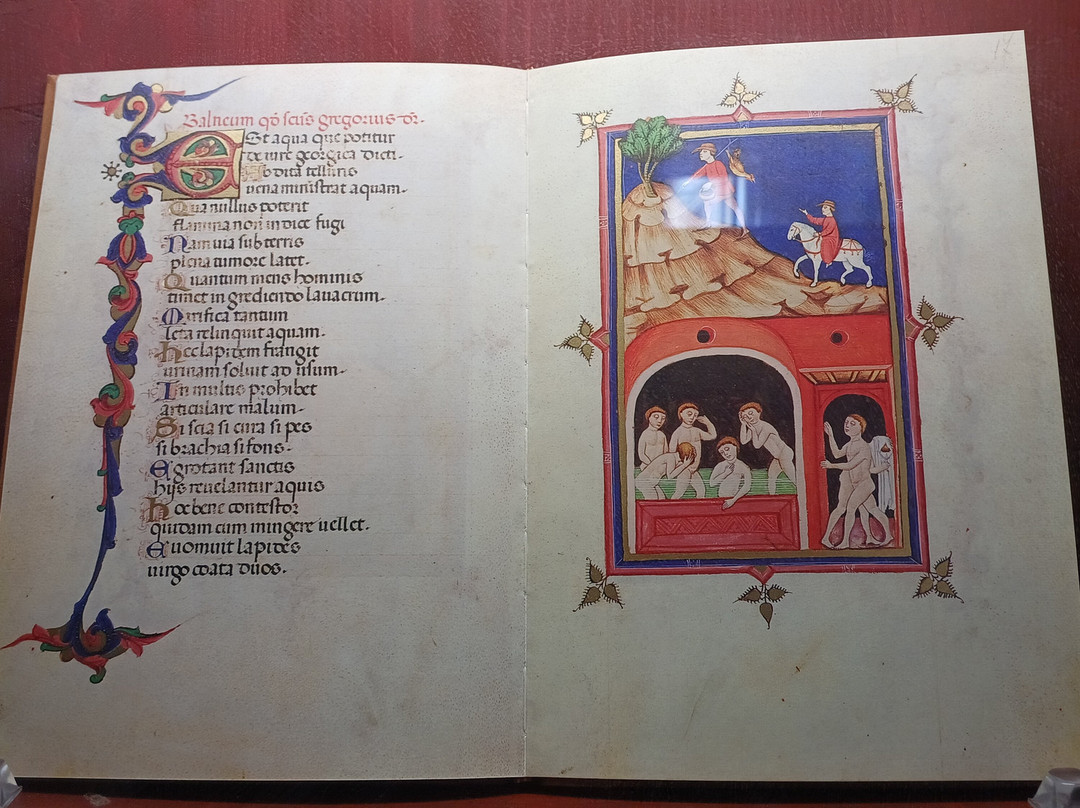 Balneum qd scūs gregorius dr.
Est aqua que potitur
de iure georgica dici.
Abdita telluris
vena ministrat aquam.
Qua nullus poterit
flamina non indice fugi
Nam via subterris
plena tumore latet.
Quantum mens hominis
timet ingrediendo lavacrum.
Mirifica tantum
leta relinquit aquam.
hec lapidem frangit
urinam soluit ad usum.
In multis prohibet
articulare malum.
Si scia si cura si pes
si brachia si fons.
Egrotant sanctis
hijs revelantur aquis
hoc bene contestor
quidam cum mingere vellet.
Evomuit lapides
virgo coata duos.
17